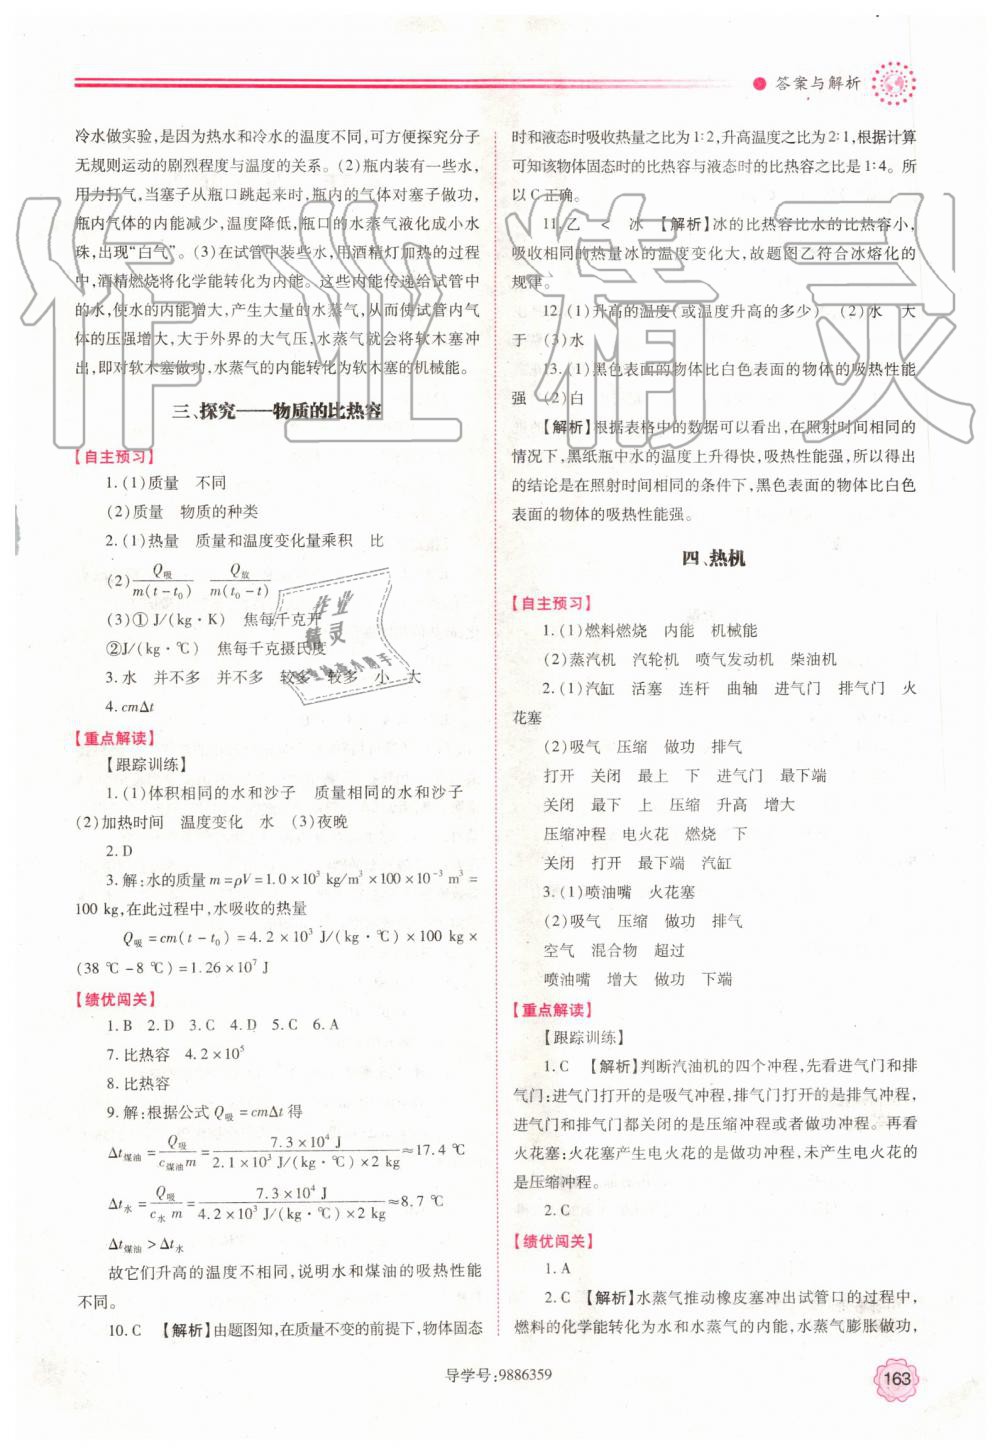 答案与解析
冷水做实验,是因为热水和冷水的温度不同,可方便探究分子
无规则运动的剧烈程度与温度的关系。(2)瓶内装有一些水,
用力打气,当塞子从瓶口跳起来时,瓶内的气体对塞子做功,
瓶内气体的内能减少,温度降低,瓶口的水蒸气液化成小水
珠,出现“白气”。(3)在试管中装些水,用酒精灯加热的过程
中,酒精燃烧将化学能转化为内能。这些内能传递给试管中
的水,使水的内能增大,产生大量的水蒸气,从而使试管内气
体的压强增大,大于外界的大气压,水蒸气就会将软木塞冲
出,即对软木塞做功,水蒸气的内能转化为软木塞的机械能。
三、探究——物质的比热容
【自主预习】
1.(1)质量 不同
(2)质量 物质的种类
2.(1)热量 质量和温度变化量乘积 比
(2) Q吸/m(t-t₀) Q放/m(t₀-t)
(3)①J/(kg·K) 焦每千克开
②J/(kg·℃) 焦每千克摄氏度
3.水 并不多 并不多 较多 较多 小 大
4.cmΔt
【重点解读】
【跟踪训练】
1.(1)体积相同的水和沙子 质量相同的水和沙子
(2)加热时间 温度变化 水 (3)夜晚
2.D
3.解:水的质量m=ρV=1.0×10³ kg/m³×100×10⁻³ m³=
100 kg,在此过程中,水吸收的热量
Q吸=cm(t-t₀)=4.2×10³ J/(kg·℃)×100 kg×
(38 ℃-8 ℃)=1.26×10⁷ J
【绩优闯关】
1.B 2.D 3.C 4.D 5.C 6.A
7.比热容 4.2×10⁵
8.比热容
9.解:根据公式Q吸=cmΔt得
Δt煤油=Q吸/c煤油m=7.3×10⁴ J/2.1×10³ J/(kg·℃)×2 kg≈17.4 ℃
Δt水=Q吸/c水m=7.3×10⁴ J/4.2×10³ J/(kg·℃)×2 kg≈8.7 ℃
Δt煤油>Δt水
故它们升高的温度不相同,说明水和煤油的吸热性能
不同。
10.C 【解析】由题图知,在质量不变的前提下,物体固态
时和液态时吸收热量之比为1∶2,升高温度之比为2∶1,根据计算
可知该物体固态时的比热容与液态时的比热容之比是1∶4。所
以C正确。
11.乙 < 冰 【解析】冰的比热容比水的比热容小,
吸收相同的热量冰的温度变化大,故题图乙符合冰熔化的
规律。
12.(1)升高的温度(或温度升高的多少) (2)水 大
于 (3)水
13.(1)黑色表面的物体比白色表面的物体的吸热性能
强 (2)白
【解析】根据表格中的数据可以看出,在照射时间相同的
情况下,黑纸瓶中水的温度上升得快,吸热性能强,所以得出
的结论是在照射时间相同的条件下,黑色表面的物体比白色
表面的物体的吸热性能强。
四、热机
【自主预习】
1.(1)燃料燃烧 内能 机械能
(2)蒸汽机 汽轮机 喷气发动机 柴油机
2.(1)汽缸 活塞 连杆 曲轴 进气门 排气门 火
花塞
(2)吸气 压缩 做功 排气
打开 关闭 最上 下 进气门 最下端
关闭 最下 上 压缩 升高 增大
压缩冲程 电火花 燃烧 下
关闭 打开 最下端 汽缸
3.(1)喷油嘴 火花塞
(2)吸气 压缩 做功 排气
空气 混合物 超过
喷油嘴 增大 做功 下端
【重点解读】
【跟踪训练】
1.C 【解析】判断汽油机的四个冲程,先看进气门和排
气门:进气门打开的是吸气冲程,排气门打开的是排气冲程,
进气门和排气门都关闭的是压缩冲程或者做功冲程。再看
火花塞:火花塞产生电火花的是做功冲程,未产生电火花的
是压缩冲程。
2.C
【绩优闯关】
1.A
2.C 【解析】水蒸气推动橡皮塞冲出试管口的过程中,
燃料的化学能转化为水和水蒸气的内能,水蒸气膨胀做功,
导学号:9886359
163
作业精灵
作业
精灵